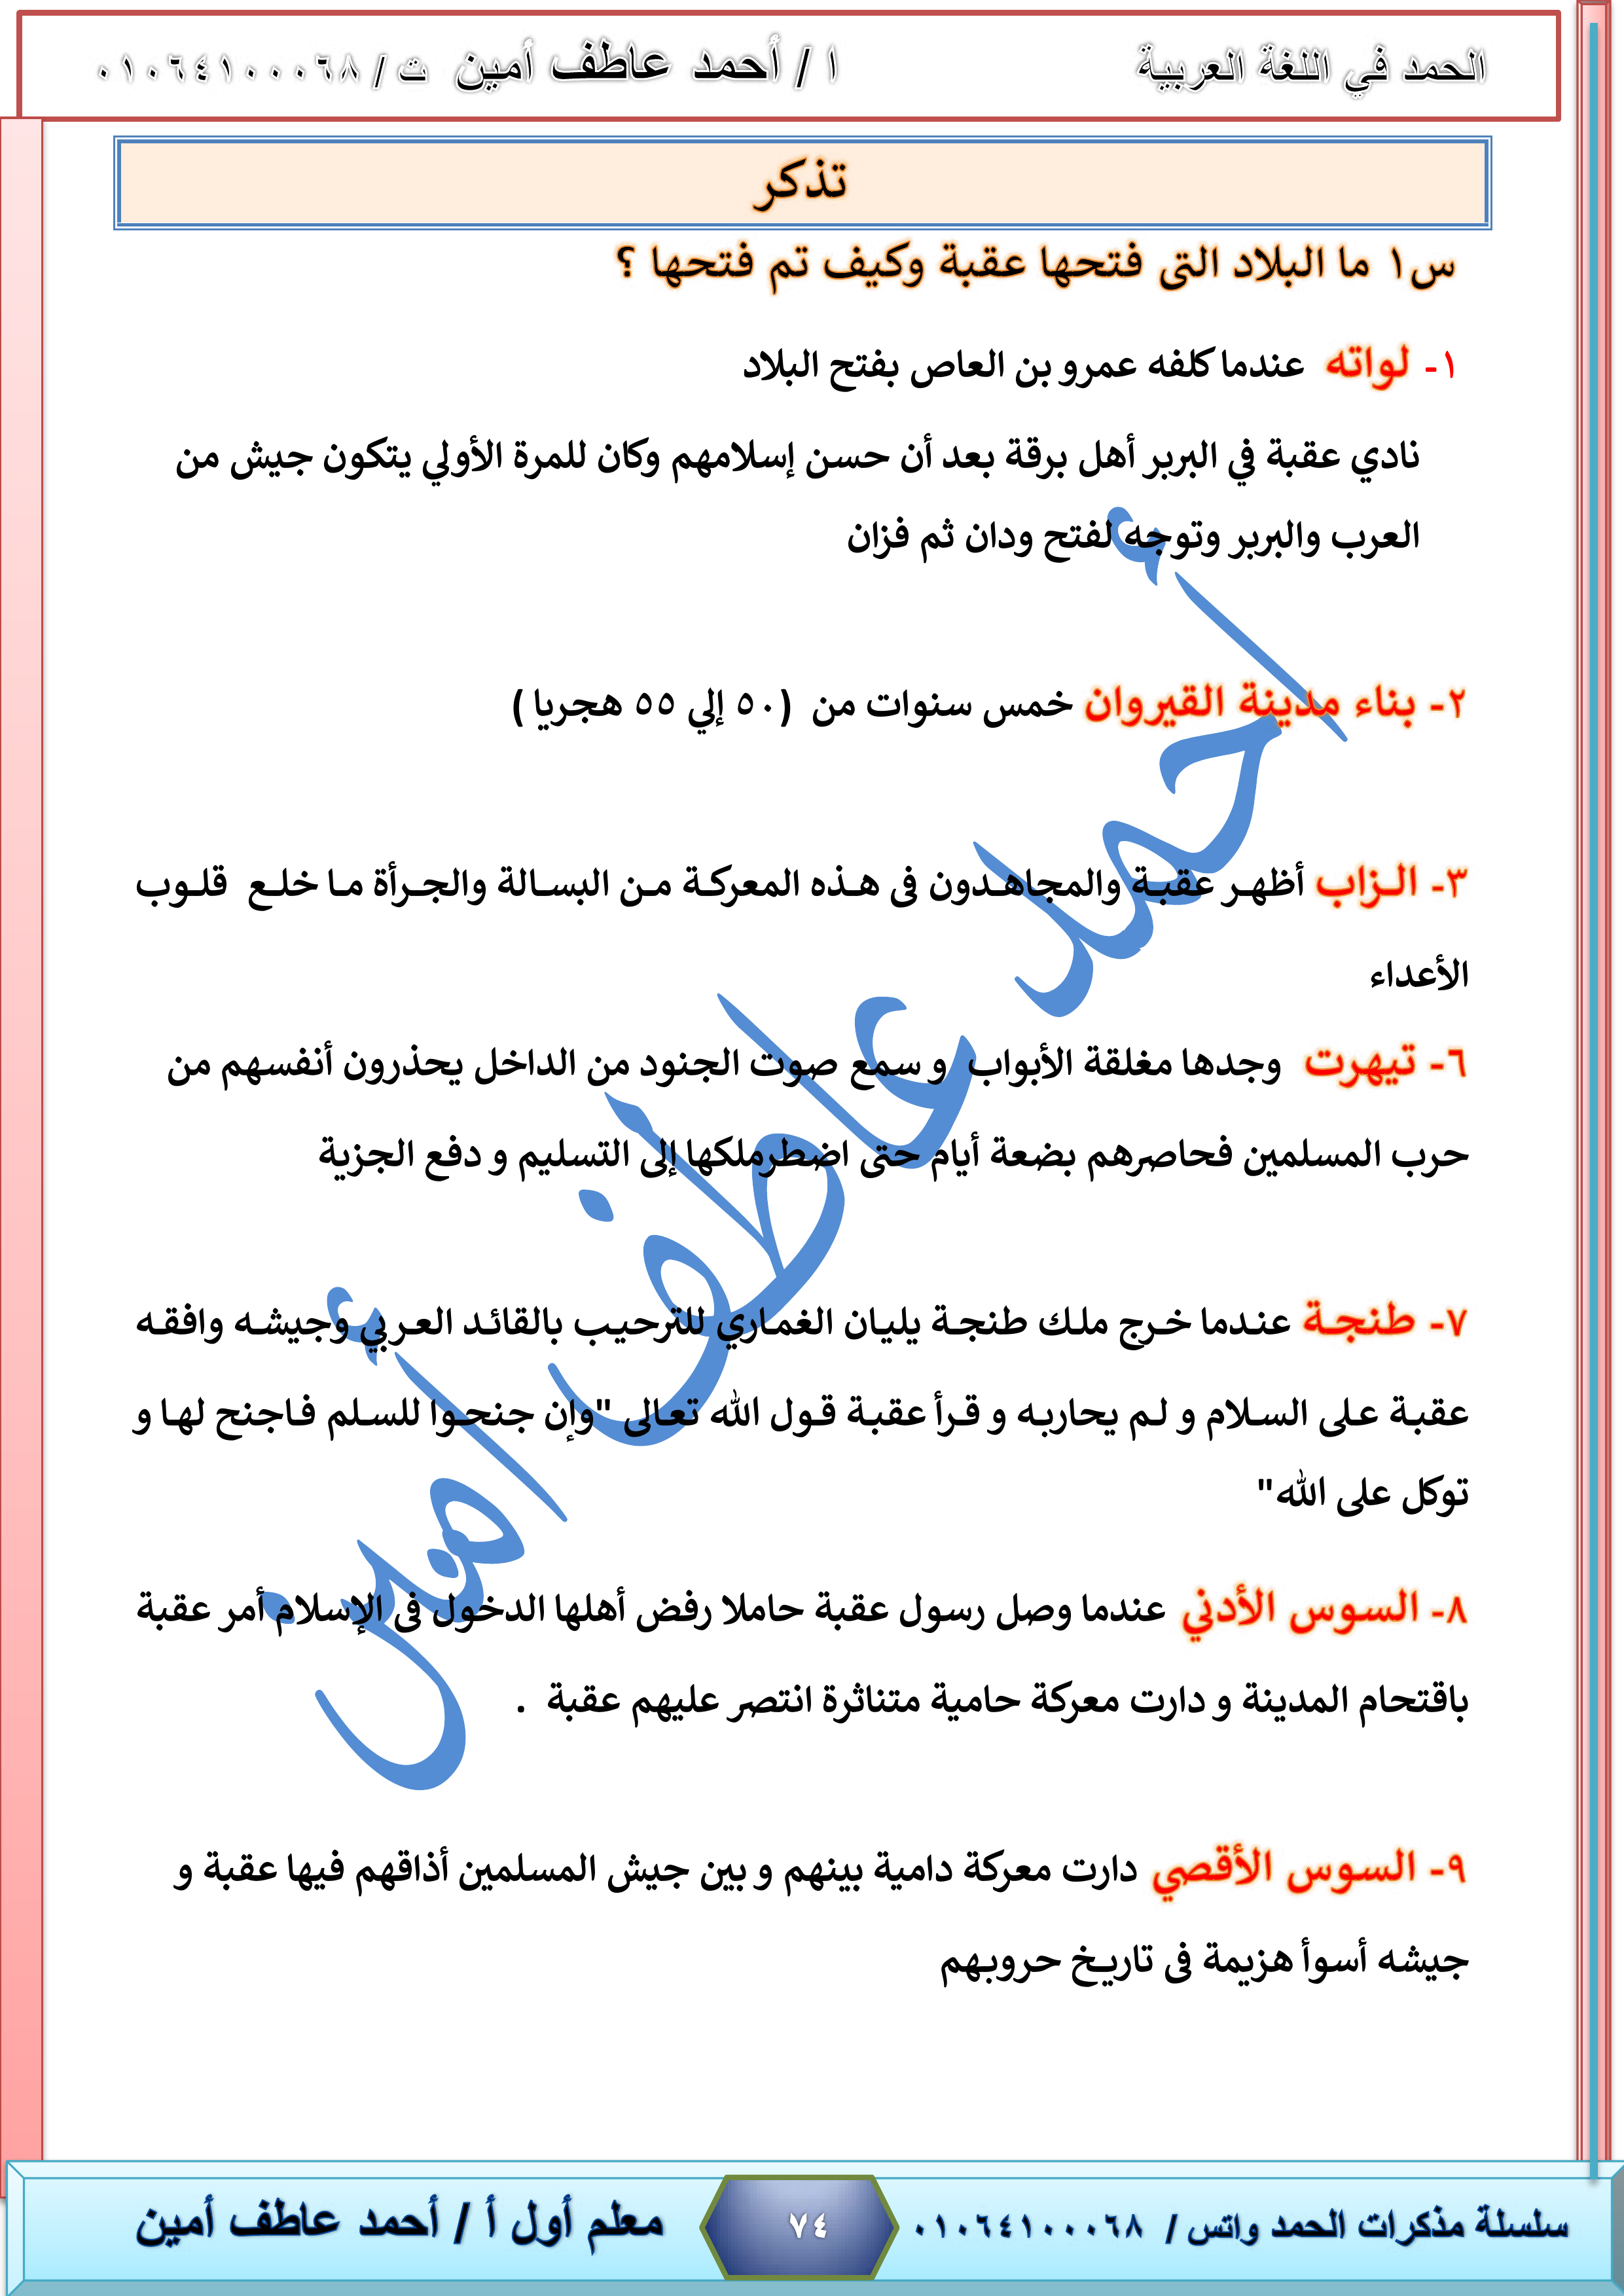 الحمد في اللغة العربية ا / أحمد عاطف أمين ت / ٠١٠٦٤١٠٠٠٦٨
تذكر
س١ ما البلاد التى فتحها عقبة وكيف تم فتحها ؟
١- لواته عندما كلفه عمرو بن العاص بفتح البلاد
نادي عقبة في البربر أهل برقة بعد أن حسن إسلامهم وكان للمرة الأولي يتكون جيش من
العرب والبربر وتوجه لفتح ودان ثم فزان
٢- بناء مدينة القيروان خمس سنوات من (٥٠ إلي ٥٥ هجريا )
٣- الزاب أظهر عقبة والمجاهدون فى هذه المعركة من البسالة والجرأة ما خلع قلوب
الأعداء
٦- تيهرت وجدها مغلقة الأبواب و سمع صوت الجنود من الداخل يحذرون أنفسهم من
حرب المسلمين فحاصرهم بضعة أيام حتى اضطرملكها إلى التسليم و دفع الجزية
٧- طنجة عندما خرج ملك طنجة يليان الغماري للترحيب بالقائد العربي وجيشه وافقه
عقبة على السلام و لم يحاربه و قرأ عقبة قول الله تعالى "وإن جنحوا للسلم فاجنح لها و
توكل على الله"
٨- السوس الأدني عندما وصل رسول عقبة حاملا رفض أهلها الدخول فى الإسلام أمر عقبة
باقتحام المدينة و دارت معركة حامية متناثرة انتصر عليهم عقبة .
٩- السوس الأقصي دارت معركة دامية بينهم و بين جيش المسلمين أذاقهم فيها عقبة و
جيشه أسوأ هزيمة فى تاريخ حروبهم
أحمد عاطف أمين
سلسلة مذكرات الحمد واتس / ٠١٠٦٤١٠٠٠٦٨ ٧٤ معلم أول أ / أحمد عاطف أمين